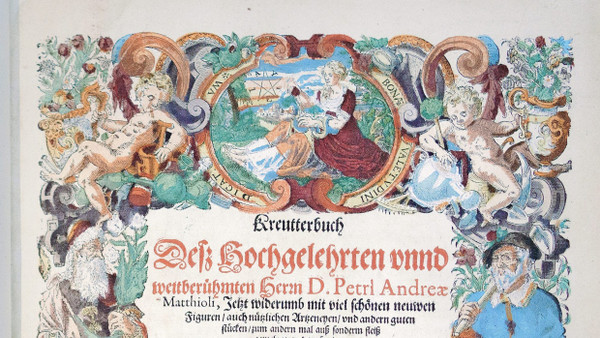 Kreutterbuch
Deſz Hochgelehrten vnnd
weitberühmten Herrn D. Petri Andreæ
Matthioli, Jetzt widerumb mit viel ſchönen neuwen
Figuren / auch nützlichen Artzeneyen / vnd andern guten
ſtücken / zum andern mal auß ſonderm fleiß